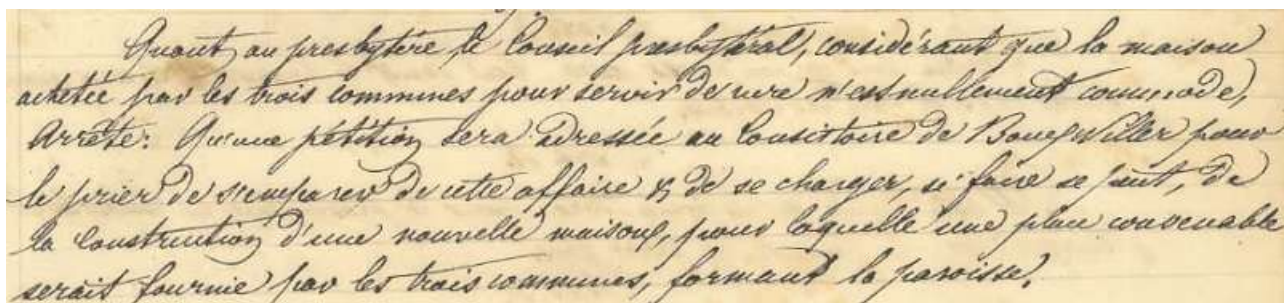 Quant au presbytère le Conseil presbytéral, considérant que la maison
achetée par les trois communes pour servir de cure n'est nullement commode,
Arrête: Qu'une pétition sera adressée au Consistoire de Bouxwiller pour
le prier de s'emparer de cette affaire & de se charger, si faire se peut, de
la construction d'une nouvelle maison, pour laquelle une place convenable
serait fournie par les trois communes, formant la paroisse.